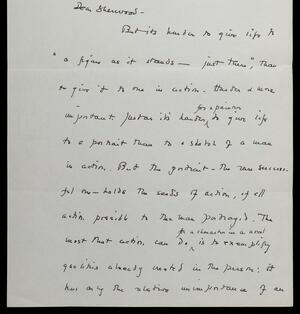 Dear Sherwood -
But its harder to give life to
"a figure as it stands — just there", than
to give it to one in action. Harder & more
for a painter
important. Just as its harder to give life
to a portrait than to a sketch of a man
in action. But the portrait - the rare success-
ful one - holds the seeds of action, of all
action possible to the man portrayed. The
for a character in a novel
most that action can do, is to exemplify
qualities already created in the person: it
has only the relative unimportance of an